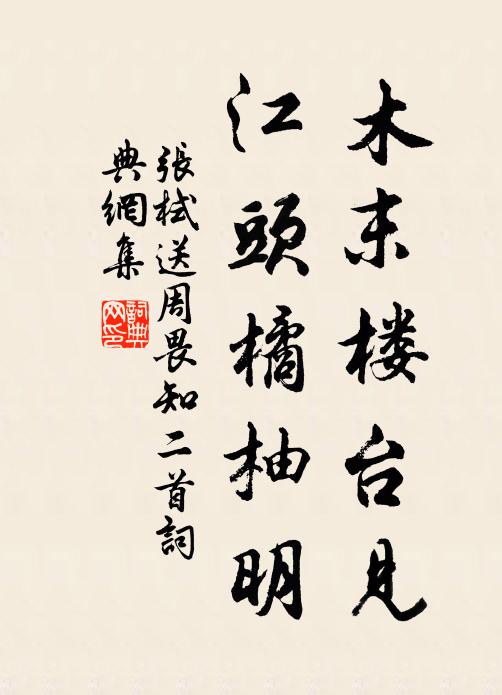 木末楼台見
江頭橘柚明
張栻送周畏知二首詞
典網集
詞典
网印